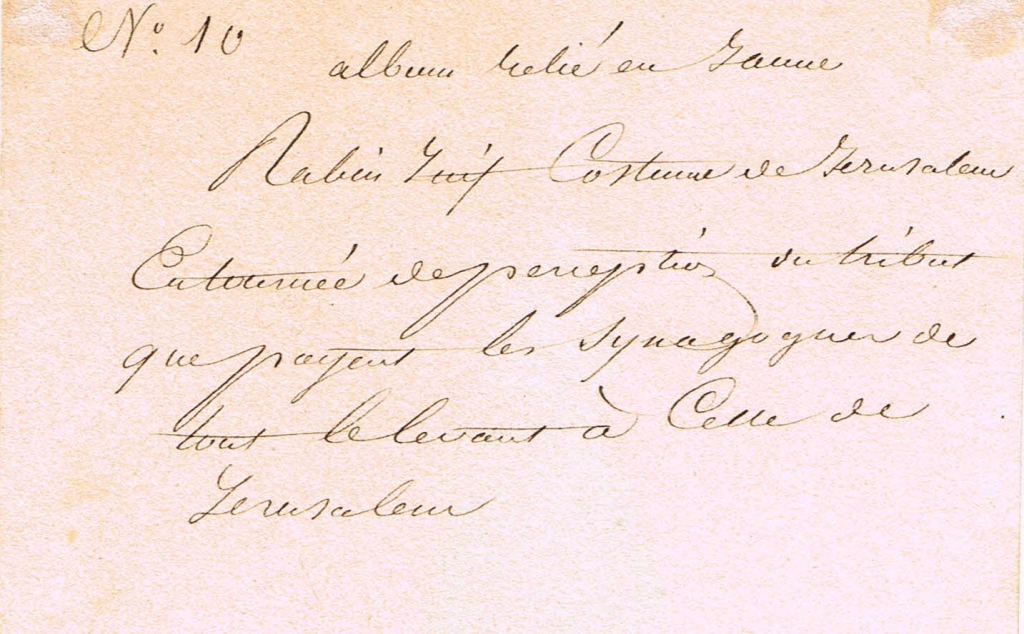 No. 10
album relié en Jaune
Rabin Juif Costume de Jerusalem
En tournée de perception du tribut
que payent les synagogues de
tout le levant à Celle de
Jerusalem